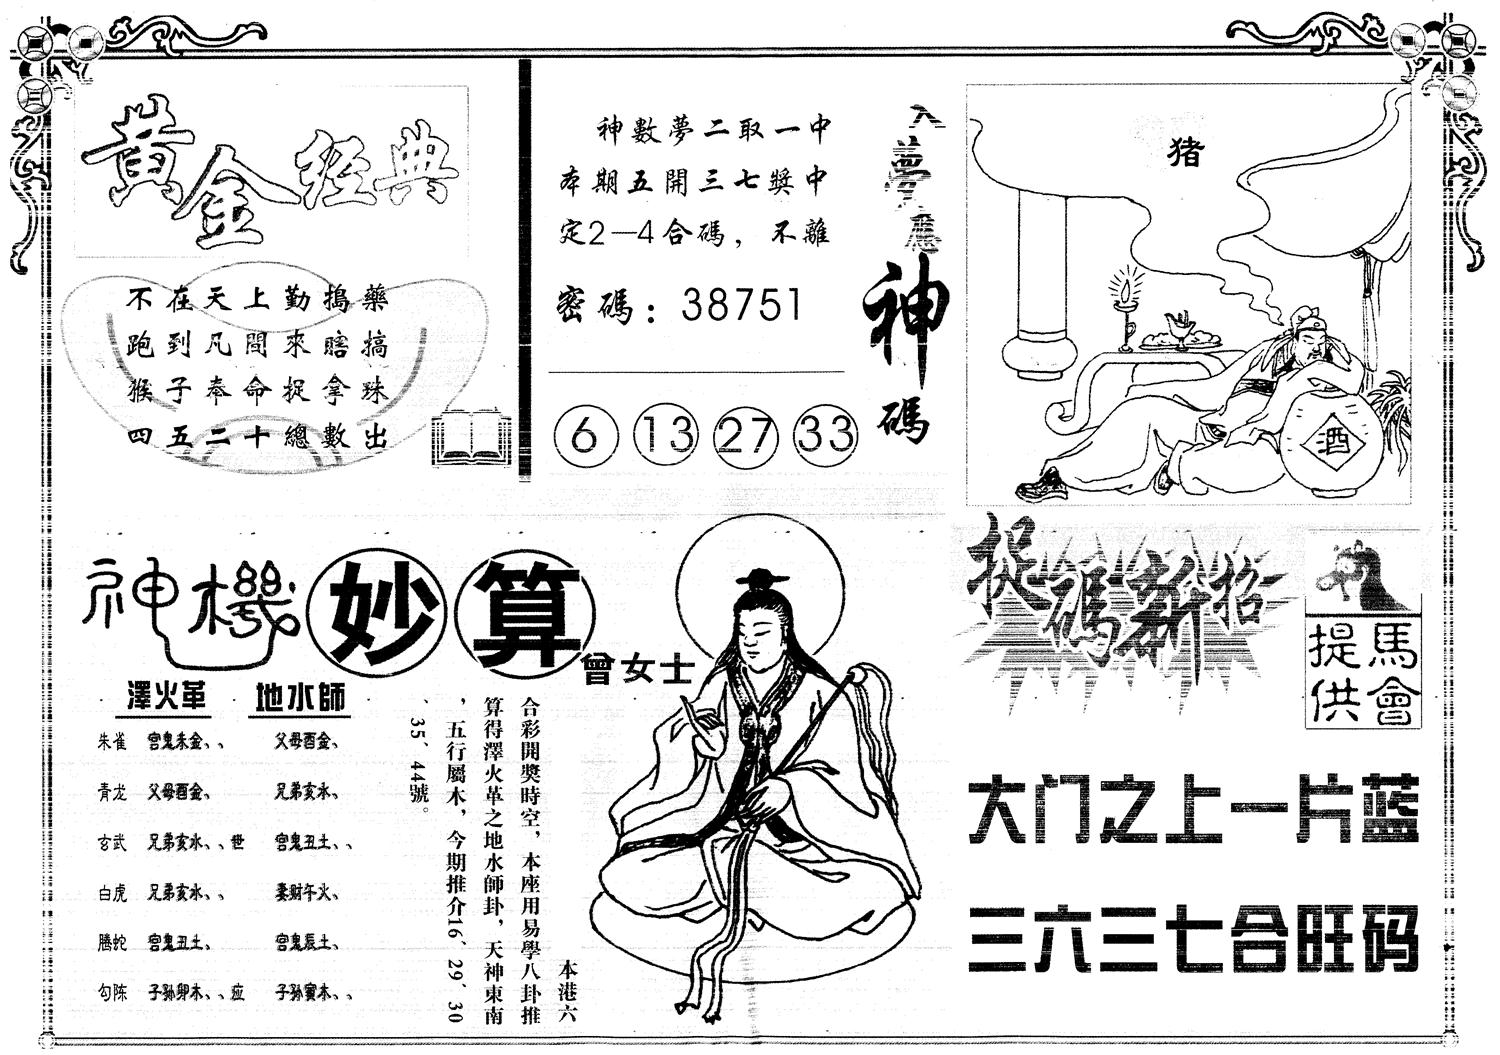 黃金經典
不在天上勤搗藥
跑到凡間來瞎搞
猴子奉命捉拿珠
四五二十總數出
神數夢二取一中
本期五開三七獎中
定2—4合碼，不離
密碼：38751
6 13 27 33
入夢應神碼
猪
酒
神機妙算
曾女士
澤火革 地水師
朱雀 官鬼未金、、 父母酉金、
青龙 父母酉金、 兄弟亥水、
玄武 兄弟亥水、、世 官鬼丑土、、
白虎 兄弟亥水、、 妻财午火、
腾蛇 官鬼丑土、 官鬼辰土、
勾陈 子孙卯木、、应 子孙寅木、、
本港六
合彩開獎時空，本座用易學八卦推
算得澤火革之地水師卦，天神東南
，五行屬木，今期推介16、29、30
、35、44號。
捉碼新招
馬會
提供
大门之上一片蓝
三六三七合旺码